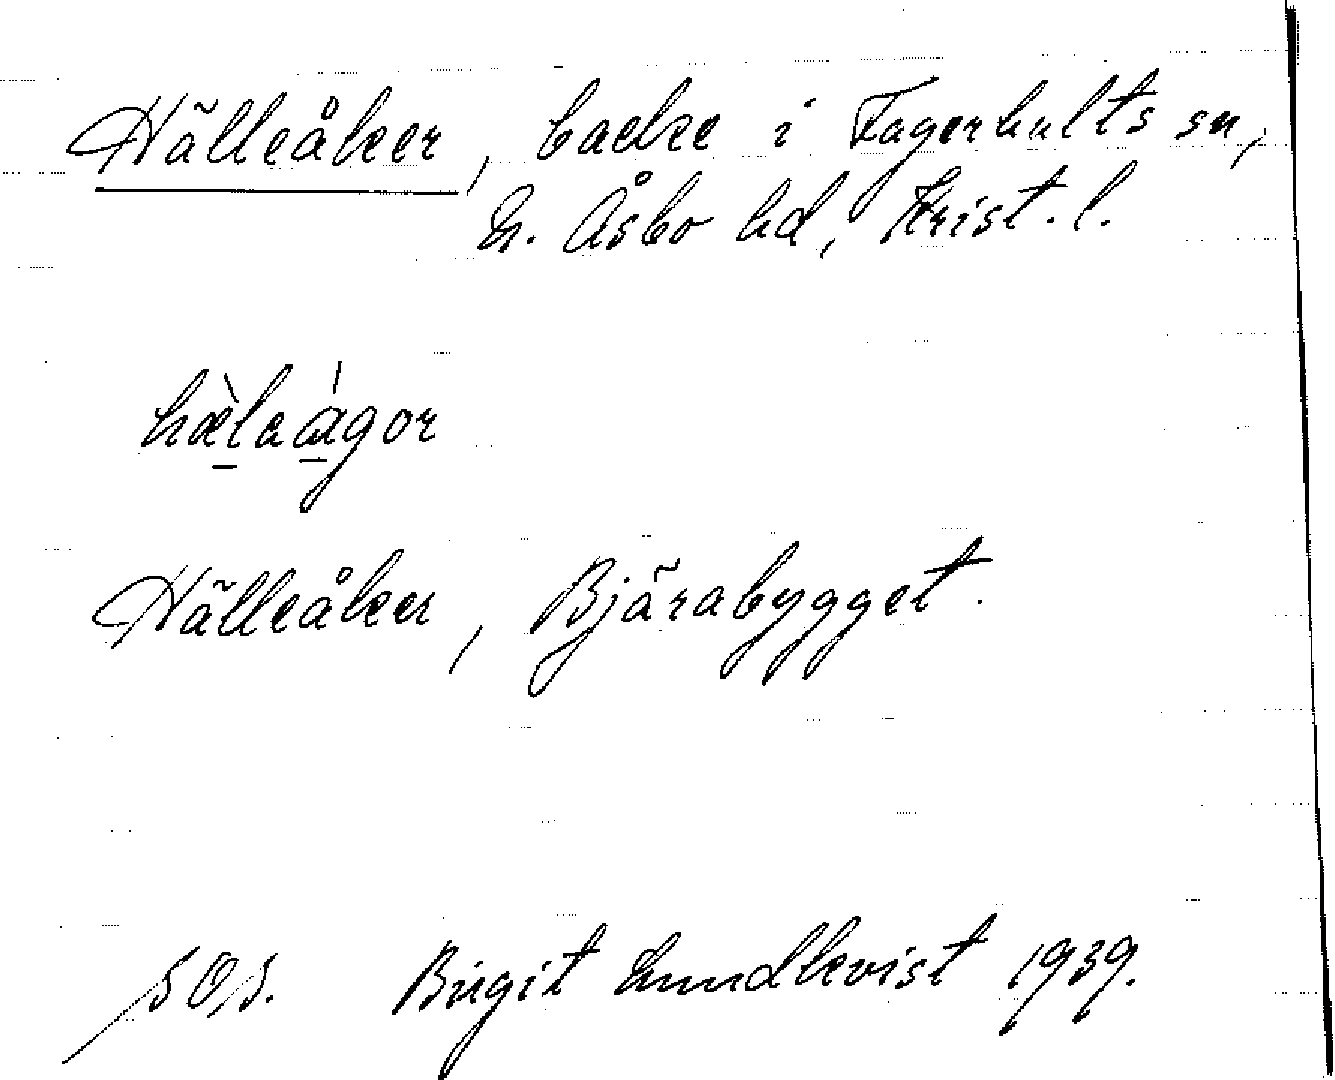 Hälleåker, backe i Fagerhults sn,
N. Åsbo hd, Krist. l.
hæ̀la̱ágor
Hälleåker, Bjärabygget.
Birgit Lundkvist 1939.